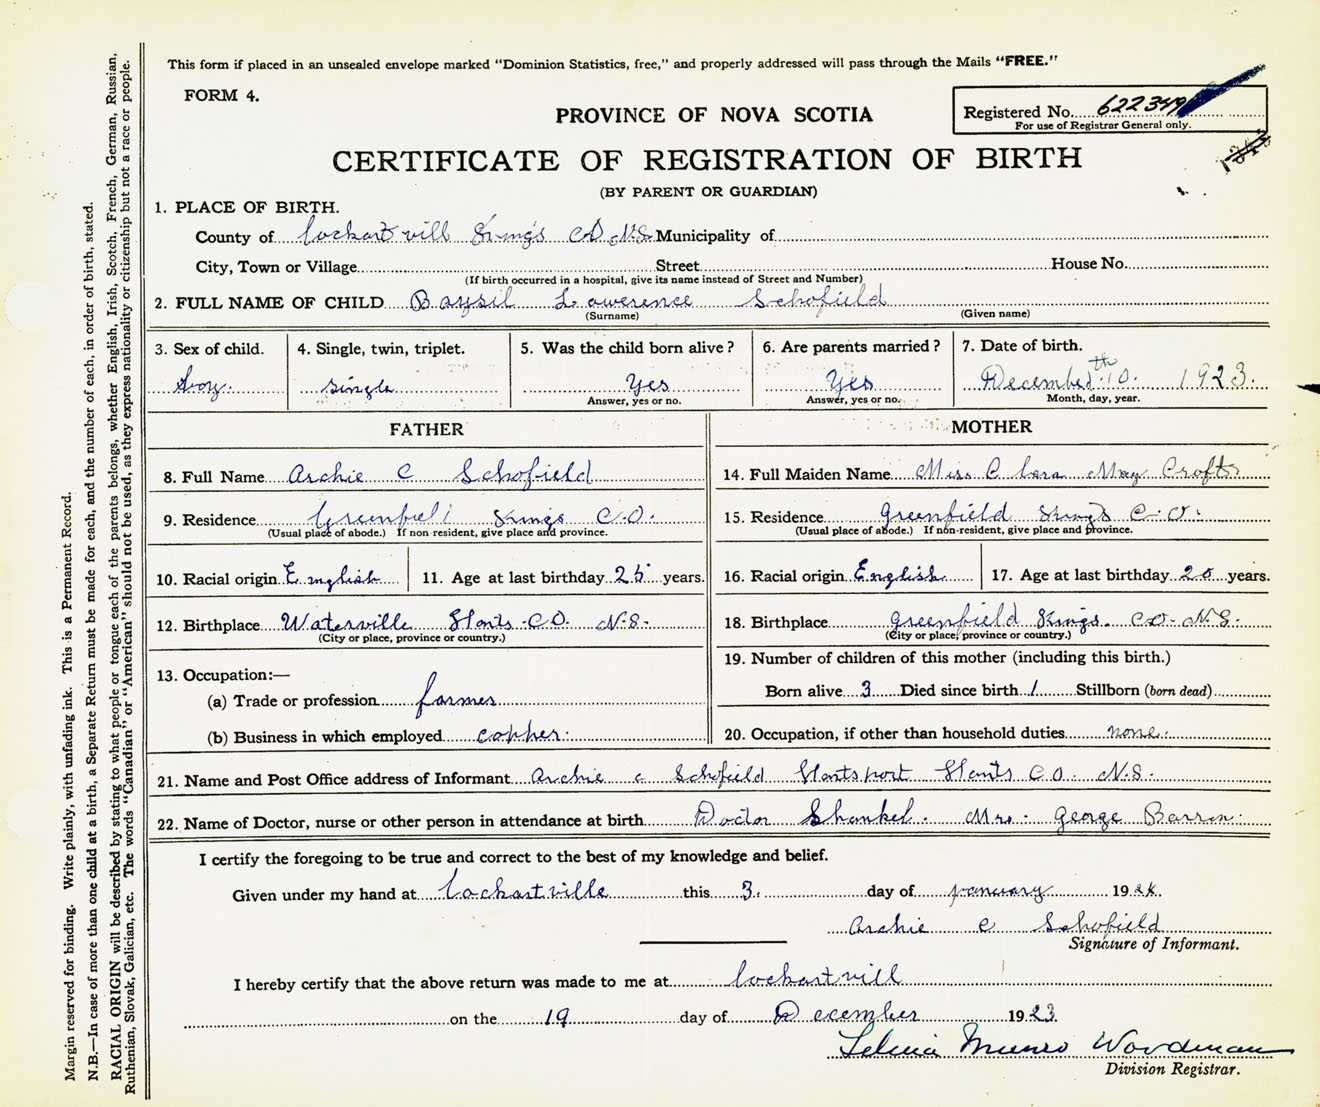 This form if placed in an unsealed envelope marked "Dominion Statistics, free," and properly addressed will pass through the Mails "FREE."
FORM 4.
PROVINCE OF NOVA SCOTIA
Registered No. 622349
For use of Registrar General only.
CERTIFICATE OF REGISTRATION OF BIRTH
(BY PARENT OR GUARDIAN)
1. PLACE OF BIRTH.
County of lockart vill Kings CO N.S. Municipality of
City, Town or Village Street House No.
(If birth occurred in a hospital, give its name instead of Street and Number)
2. FULL NAME OF CHILD Baysil Lowerence Schofield
(Surname) (Given name)
3. Sex of child. 4. Single, twin, triplet. 5. Was the child born alive? 6. Are parents married? 7. Date of birth.
boy. single Yes Yes December 10th 1923.
Answer, yes or no. Answer, yes or no. Month, day, year.
FATHER MOTHER
8. Full Name Archie C Schofield 14. Full Maiden Name Miss Clara May Crofts
9. Residence Greenfiel Kings C.O. 15. Residence Greenfield Kings C.O.
(Usual place of abode.) If non-resident, give place and province. (Usual place of abode.) If non-resident, give place and province.
10. Racial origin English 11. Age at last birthday 25 years. 16. Racial origin English 17. Age at last birthday 20 years.
12. Birthplace Waterville Hants CO. N.S. 18. Birthplace Greenfield Kings. CO. N.S.
(City or place, province or country.) (City or place, province or country.)
13. Occupation:— 19. Number of children of this mother (including this birth.)
(a) Trade or profession farmer Born alive 3 Died since birth 1 Stillborn (born dead)
(b) Business in which employed 20. Occupation, if other than household duties none.
21. Name and Post Office address of Informant Archie C Schofield Hantsport Hants CO. N.S.
22. Name of Doctor, nurse or other person in attendance at birth Doctor Shankel. Mrs. George Barron.
I certify the foregoing to be true and correct to the best of my knowledge and belief.
Given under my hand at lockartville this 3. day of january 1924.
Archie C Schofield
Signature of Informant.
I hereby certify that the above return was made to me at lockartvill
on the 19 day of December 1923
Munro Woodman
Division Registrar.
Margin reserved for binding. Write plainly, with unfading ink. This is a Permanent Record.
N.B.—In case of more than one child at a birth, a Separate Return must be made for each, and the number of each, in order of birth, stated.
RACIAL ORIGIN will be described by stating to what people or tongue each of the parents belongs, whether English, Irish, Scotch, French, German, Russian,
Ruthenian, Slovak, Galician, etc. The words "Canadian" or "American" should not be used, as they express nationality or citizenship but not a race or people.